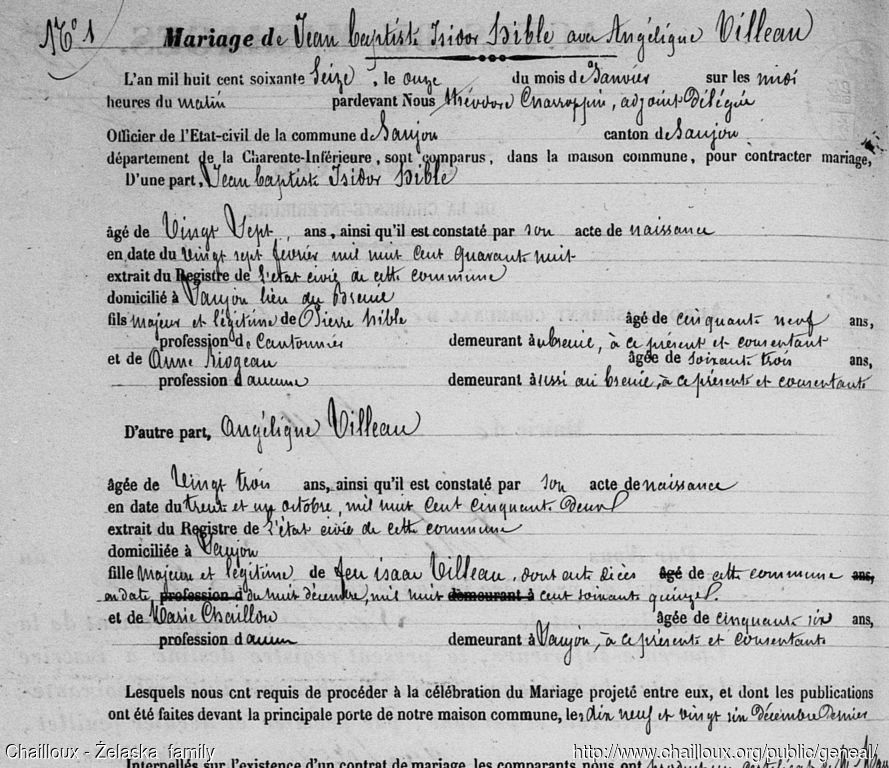 N° 1 Mariage de Jean baptiste Isidor Hible avec Angélique Villeau
L'an mil huit cent soixante Seize, le onze du mois de Janvier sur les midi
heures du matin pardevant Nous Théodore Charroppin, adjoint Délégué
Officier de l'Etat-civil de la commune de Saujon canton de Saujon
département de la Charente-Inférieure, sont comparus, dans la maison commune, pour contracter mariage,
D'une part, Jean baptiste Isidor Hible
âgé de Vingt Sept ans, ainsi qu'il est constaté par son acte de naissance
en date du Vingt sept février mil huit cent quarante huit
extrait du Registre de l'état civil de cette commune
domicilié à Saujon lieu du Breuil
fils majeur et légitime de Pierre Hible âgé de cinquante neuf ans,
profession de Cantonnier demeurant à ubreuil, à ce présent et consentant
et de Anne Riogeau âgée de soixante trois ans,
profession d'aucune demeurant à ussi au breuil, à ce présente et consentante
D'autre part, Angélique Villeau
âgée de Vingt trois ans, ainsi qu'il est constaté par son acte de naissance
en date du trente et un octobre, mil huit Cent Cinquante Deux
extrait du Registre de l'état civil de cette commune
domiciliée à Saujon
fille majeure et légitime de feu isaac Villeau, dont acte décès âgé de cette commune ans,
en date profession d du huit décembre, mil huit demeurant à cent soixante quinze.
et de Marie Chaillou âgée de cinquante six ans,
profession d'aucun demeurant à Saujon, à ce présente et consentante
Lesquels nous ont requis de procéder à la célébration du Mariage projeté entre eux, et dont les publications
ont été faites devant la principale porte de notre maison commune, les dix neuf et vingt six Décembre Dernier
Interpellés sur l'existence d'un contrat de mariage, les comparants nous ont produit un certificat de Mr
Chailloux - Żelaska family http://www.chailloux.org/public/geneal/